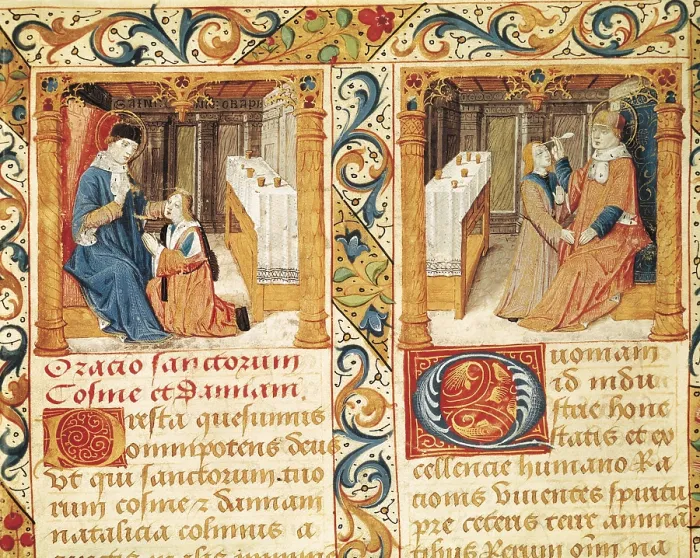 Oracio sanctorum
Cosme et Damiani
Presta quesumus
omnipotens deus
vt qui sanctorum tuo
rum cosme z damiani
natalicia colimus a
Quoniam
id indu
strie hone
statis et ex
cellencie humano Ra
cionis viuentes spiritu
pre ceteris rerum
tibus Rerum